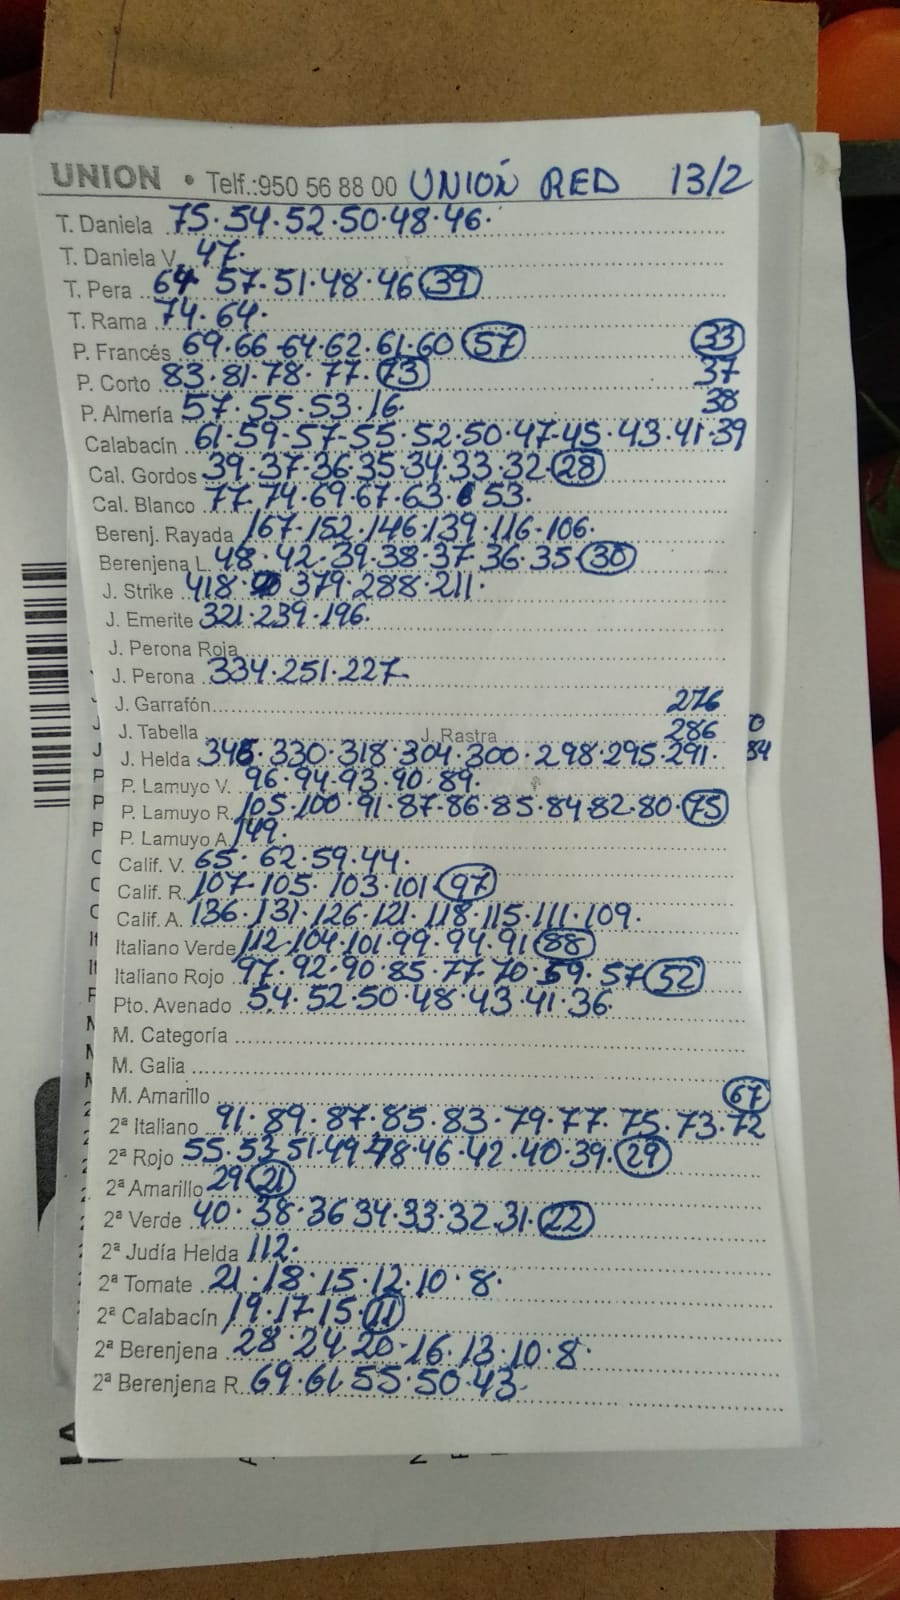 UNION • Telf.:950 56 88 00 UNIÓN RED 13/2
T. Daniela 75·54·52·50·48·46·
T. Daniela V. 47·
T. Pera 64 57·51·48·46 39
T. Rama 74·64·
P. Francés 69·66·64·62·61·60 57 33
P. Corto 83·81·78·77·73 37
P. Almería 57·55·53·16· 38
Calabacín 61·59·57·55·52·50·47·45·43·41·39
Cal. Gordos 39·37·36·35·34·33·32·28
Cal. Blanco 77·74·69·67·63· 53·
Berenj. Rayada 167·152·146·139·116·106·
Berenjena L. 48·42·39·38·37·36·35 30
J. Strike 418· 379·288·211·
J. Emerite 321·239·196·
J. Perona Roja
J. Perona 334·251·227·
J. Garrafón 276
J. Tabella J. Rastra 286
J. Helda 345·330·318·304·300·298·295·291· 84
P. Lamuyo V. 96·94·93·90·89·
P. Lamuyo R. 105·100·91·87·86·85·84·82·80·75
P. Lamuyo A. 149·
Calif. V. 65·62·59·44·
Calif. R. 107·105·103·101 97
Calif. A. 136·131·126·121·118·115·111·109·
Italiano Verde 112·104·101·99·94·91 88
Italiano Rojo 97·92·90·85·77·70·59·57 52
Pto. Avenado 54·52·50·48·43·41·36·
M. Categoría
M. Galia
M. Amarillo 67
2ª Italiano 91·89·87·85·83·79·77·75·73·72
2ª Rojo 55·53·51·49·48·46·42·40·39·29
2ª Amarillo 29 21
2ª Verde 40·38·36 34·33·32·31·22
2ª Judía Helda 112·
2ª Tomate 21·18·15·12·10·8·
2ª Calabacín 19·17·15·11
2ª Berenjena 28·24·20·16·13·10·8·
2ª Berenjena R. 69·61·55·50·43·